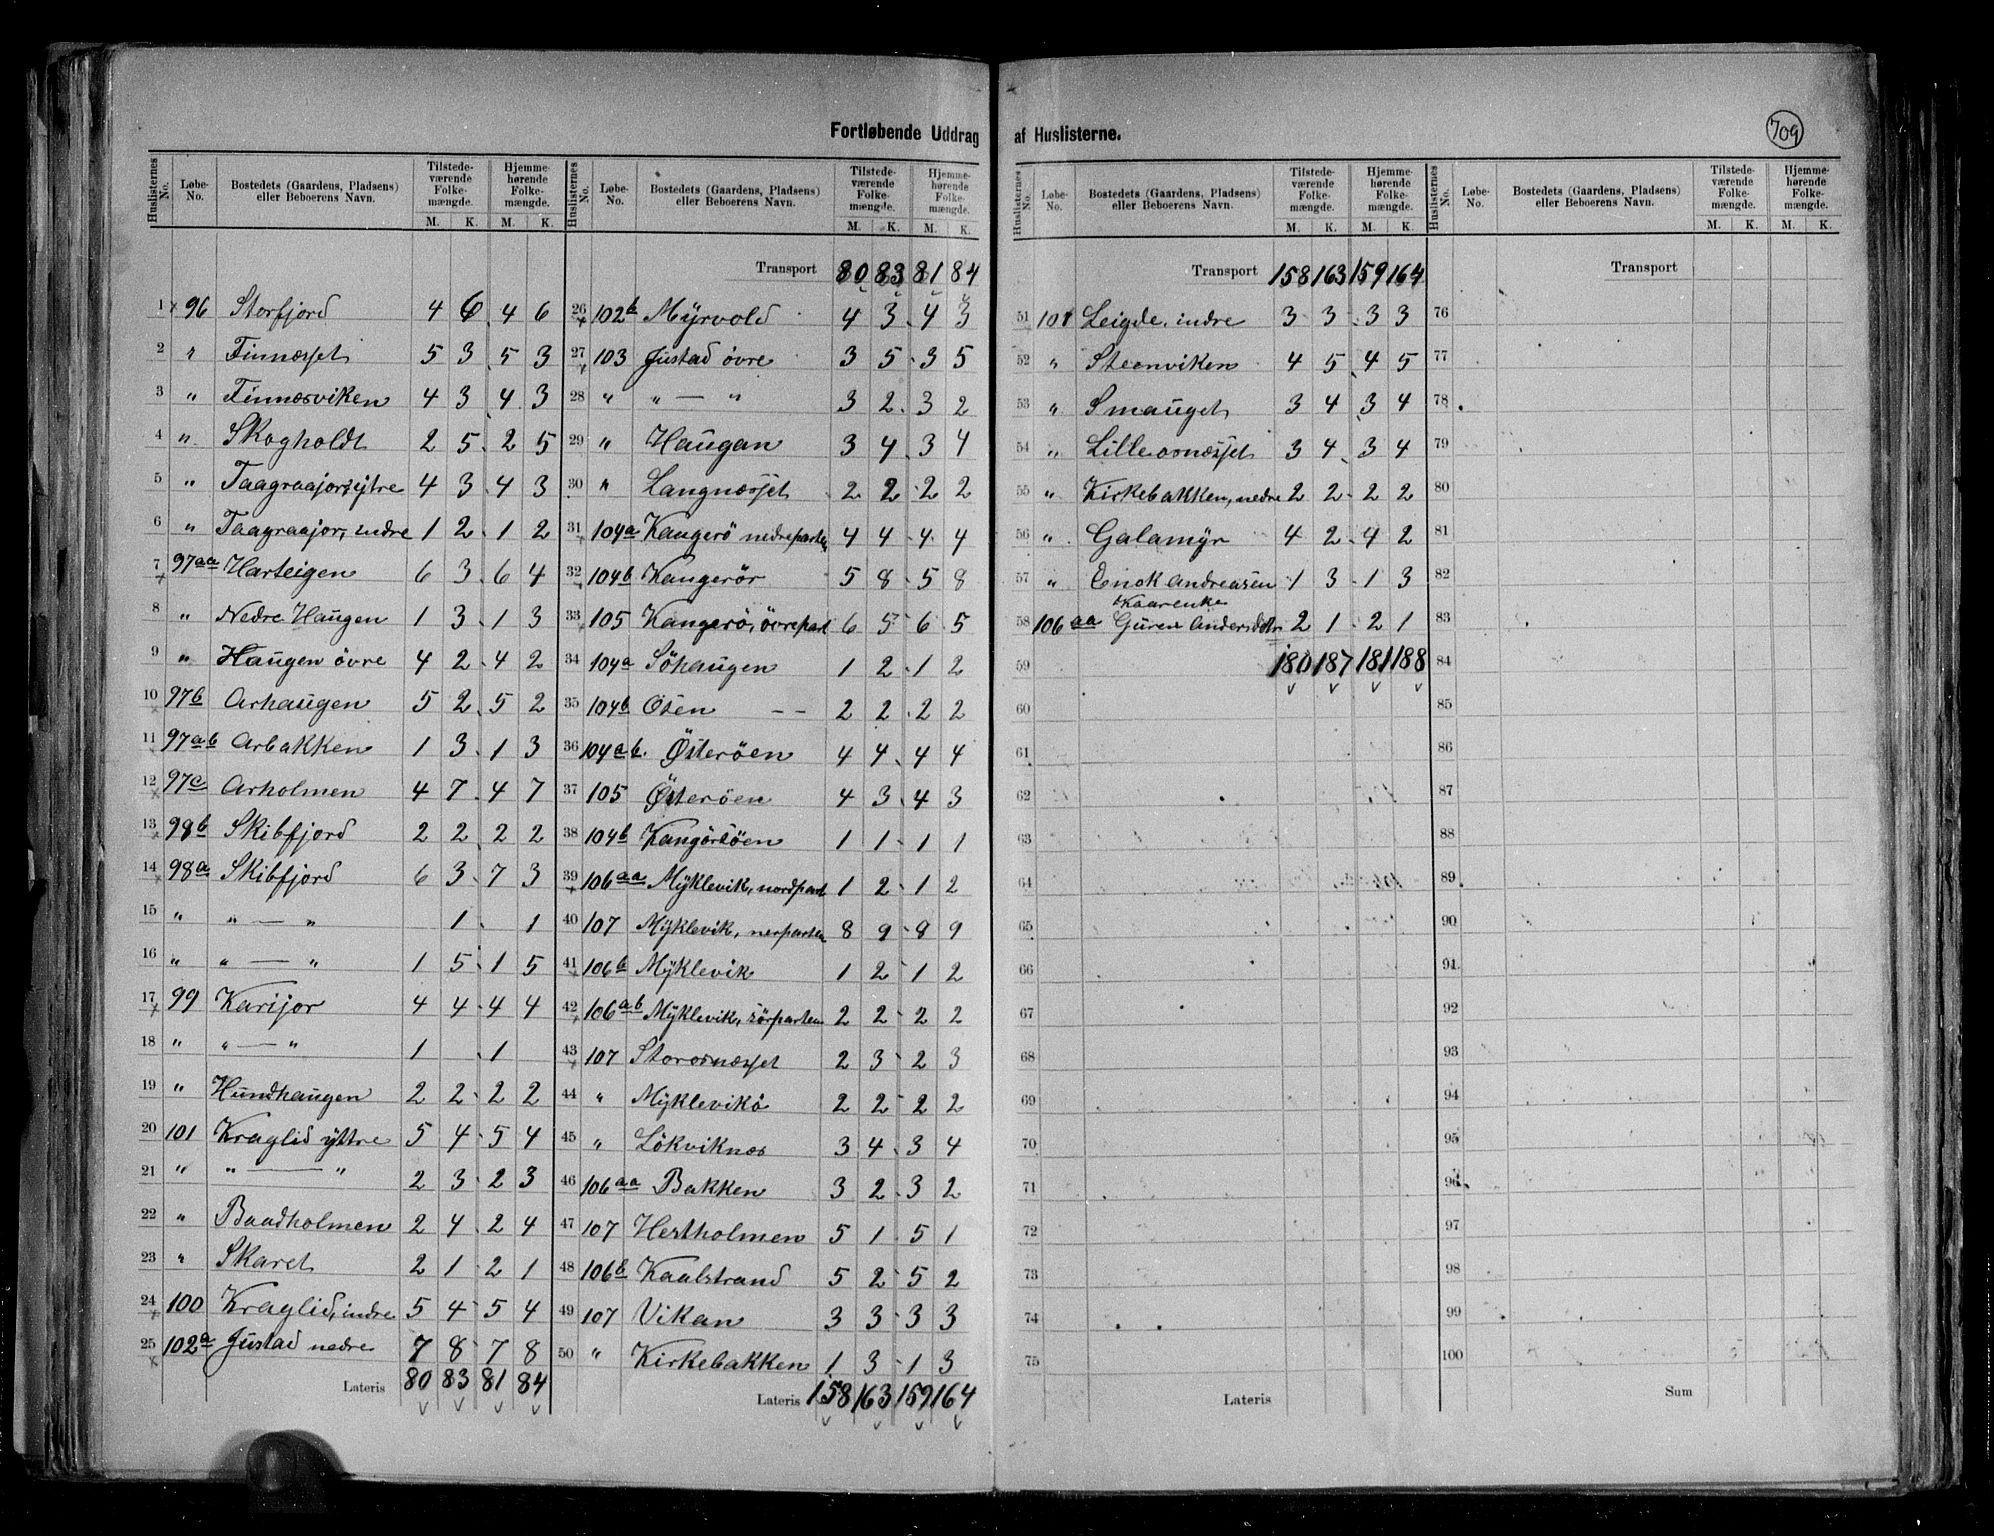 709
Fortløbende Uddrag af Huslisterne.
Huslisternes No. Løbe-No. Bostedets (Gaardens, Pladsens) eller Beboerens Navn. Tilstedeværende Folkemængde. M. K. Hjemmehørende Folkemængde. M. K.
1 96 Storfjord 4 6 4 6
2 " Finnæsset 5 3 5 3
3 " Finnæsviken 4 3 4 3
4 " Skogholdt 2 5 2 5
5 " Taagraajor, ytre 4 3 4 3
6 " Taagraajor, indre 1 2 1 2
7 97aa Harteigen 6 3 6 4
8 " Nedre Haugen 1 3 1 3
9 " Haugen övre 4 2 4 2
10 97b Arhaugen 5 2 5 2
11 97ab Arbakken 1 3 1 3
12 97c Arholmen 4 7 4 7
13 98b Skibfjord 2 2 2 2
14 98a Skibfjord 6 3 7 3
15 " " — " 1 1
16 " " — " 1 5 1 5
17 99 Karijor 4 4 4 4
18 " " — " 1 1
19 " Hundhaugen 2 2 2 2
20 101 Kraglid yttre 5 4 5 4
21 " " — " 2 3 2 3
22 " Baadholmen 2 4 2 4
23 " Skaret 2 1 2 1
24 100 Kraglid, indre 5 4 5 4
25 102a Justad nedre 7 8 7 8
Lateris 80 83 81 84
Huslisternes No. Løbe-No. Bostedets (Gaardens, Pladsens) eller Beboerens Navn. Tilstedeværende Folkemængde. M. K. Hjemmehørende Folkemængde. M. K.
Transport 80 83 81 84
26 102b Myrvold 4 3 4 3
27 103 Justad övre 3 5 3 5
28 " " — " 3 2 3 2
29 " Haugan 3 4 3 4
30 " Langnæsset 2 2 2 2
31 104a Kangerö nedreparten 4 4 4 4
32 104b Kangerör 5 8 5 8
33 105 Kangerö, övrepart 6 5 6 5
34 104a Söhaugen 1 2 1 2
35 104b Osen – – 2 2 2 2
36 104ab. Österöen 4 4 4 4
37 105 Österöen 4 3 4 3
38 104b Kangöröen 1 1 1 1
39 106aa Myklevik, nordpart 1 2 1 2
40 107 Myklevik, nerparten 8 9 8 9
41 106b Myklevik 1 2 1 2
42 106ab Myklevik, sörparten 2 2 2 2
43 107 Storosnæsset 2 3 2 3
44 " Myklevikö 2 2 2 2
45 " Lökviknæs 3 4 3 4
46 106aa Bakken 3 2 3 2
47 107 Hestholmen 5 1 5 1
48 106b Kaalstrand 5 2 5 2
49 107 Vikan 3 3 3 3
50 " Kirkebakken 1 3 1 3
Lateris 158 163 159 164
Huslisternes No. Løbe-No. Bostedets (Gaardens, Pladsens) eller Beboerens Navn. Tilstedeværende Folkemængde. M. K. Hjemmehørende Folkemængde. M. K.
Transport 158 163 159 164
51 107 Leigde, indre 3 3 3 3
52 " Steenviken 4 5 4 5
53 " Smauget 3 4 3 4
54 " Lilleosnæsset 3 4 3 4
55 " Kirkebakken, nedre 2 2 2 2
56 " Galamyr 4 2 4 2
57 " Enok Andreasen 1 3 1 3
58 106aa Guren Andersdtr 2 1 2 1
59 180 187 181 188
60
61
62
63
64
65
66
67
68
69
70
71
72
73
74
75
Lateris
Huslisternes No. Løbe-No. Bostedets (Gaardens, Pladsens) eller Beboerens Navn. Tilstedeværende Folkemængde. M. K. Hjemmehørende Folkemængde. M. K.
Transport
76
77
78
79
80
81
82
83
84
85
86
87
88
89
90
91
92
93
94
95
96
97
98
99
100
Sum